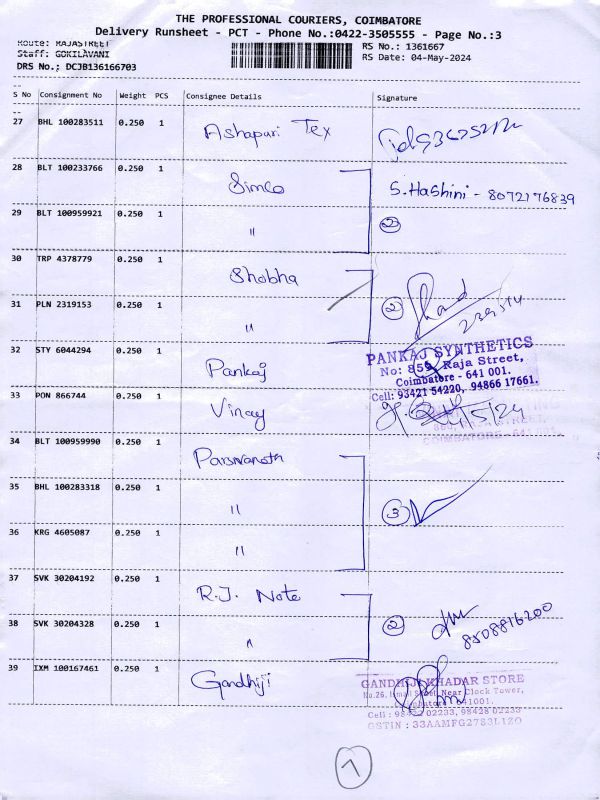 THE PROFESSIONAL COURIERS, COIMBATORE
Delivery Runsheet - PCT - Phone No.:0422-3505555 - Page No.:3
Route: RAJASTREET
Staff: GOKILAVANI
DRS No.; DCJB136166703
RS No.: 1361667
RS Date: 04-May-2024
S No Consignment No Weight PCS Consignee Details Signature
27 BHL 100283511 0.250 1 Ashapuri Tex
28 BLT 100233766 0.250 1 Simco S.Hashini - 8072176839
29 BLT 100959921 0.250 1 " 2
30 TRP 4378779 0.250 1 Shobha
31 PLN 2319153 0.250 1 " 2
32 STY 6044294 0.250 1 Pankaj
PANKAJ SYNTHETICS
No: 859, Raja Street,
Coimbatore - 641 001.
Cell: 93421 54220, 94866 17661.
33 PON 866744 0.250 1 Vinay
COIMBATORE - 641 001.
34 BLT 100959990 0.250 1 Parswanath
35 BHL 100283318 0.250 1 " 3
36 KRG 4605087 0.250 1 "
37 SVK 30204192 0.250 1 R.J. Note
38 SVK 30204328 0.250 1 " 2 8508816200
39 IXM 100167461 0.250 1 Gandhiji
GANDHIJI KHADAR STORE
No.26, Street, Near Clock Tower,
Coimbatore - 641001.
02233, 98428 02233
GSTIN : 33AAMFG2783L1ZO
7